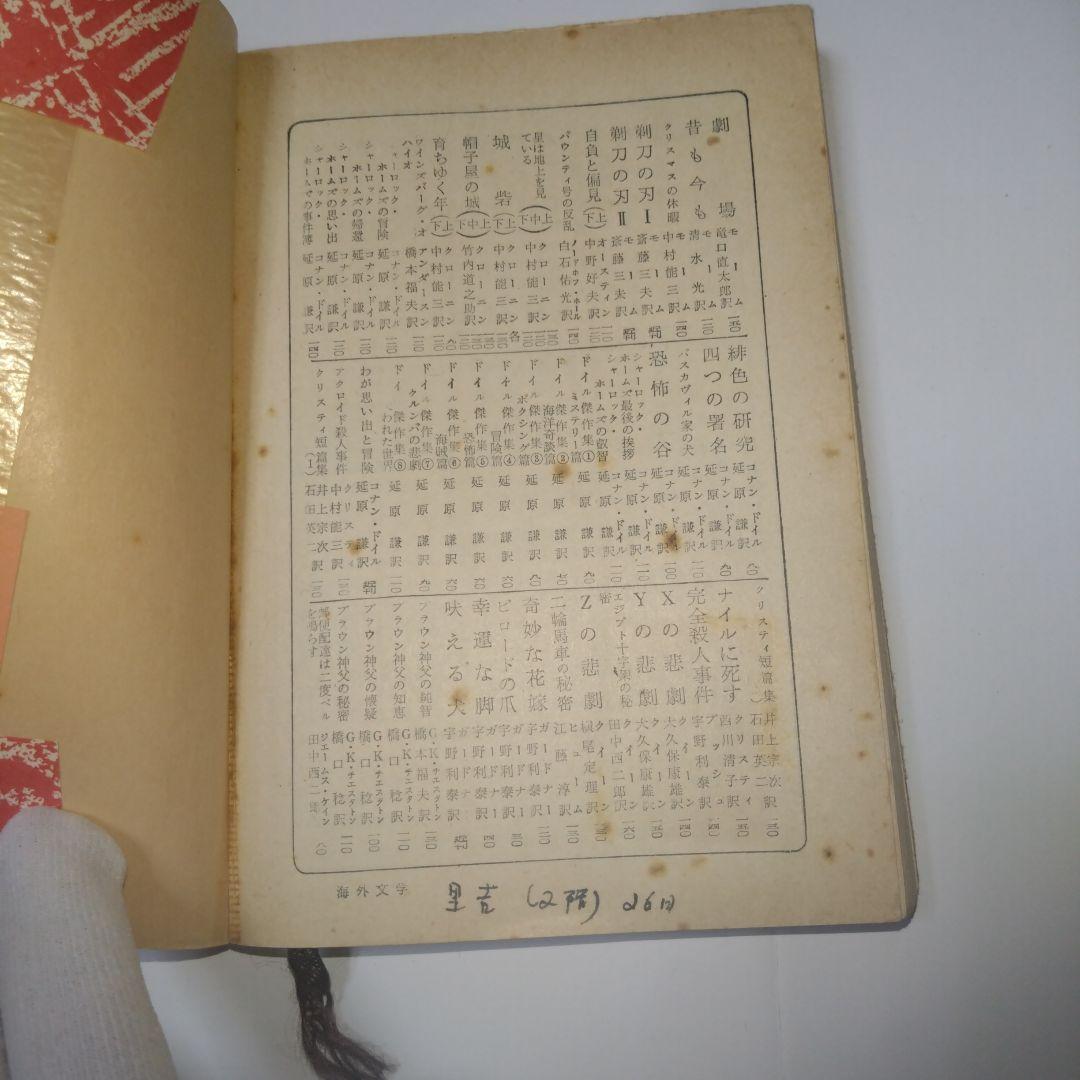 劇場 モーム 竜口直太郎訳 一五〇
昔も今も モーム 清水光訳 一三〇
クリスマスの休暇 モーム 中村能三訳 一四〇
剃刀の刃Ⅰ モーム 斎藤三夫訳
剃刀の刃Ⅱ モーム 斎藤三夫訳
自負と偏見(上下) オースティン 中野好夫訳
バウンティ号の反乱 ノードホフ・ホール 白石佑光訳 一四〇
星は地上を見ている(上中下) クローニン 中村能三訳
城砦(上下) クローニン 中村能三訳 各
帽子屋の城(上中下) クローニン 竹内道之助訳
育ちゆく年(上下) クローニン 中村能三訳
ワインズバーグ・オハイオ アンダースン 橋本福夫訳 一三〇
シャーロック・ホームズの冒険 コナン・ドイル 延原謙訳 一三〇
シャーロック・ホームズの帰還 コナン・ドイル 延原謙訳
シャーロック・ホームズの思い出 コナン・ドイル 延原謙訳 一三〇
シャーロック・ホームズの事件簿 コナン・ドイル 延原謙訳 一四〇
緋色の研究 コナン・ドイル 延原謙訳 八〇
四つの署名 コナン・ドイル 延原謙訳 九〇
バスカヴィル家の犬 コナン・ドイル 延原謙訳 一二〇
恐怖の谷 コナン・ドイル 延原謙訳 一〇〇
シャーロック・ホームズ最後の挨拶 コナン・ドイル 延原謙訳 一一〇
シャーロック・ホームズの叡智 コナン・ドイル 延原謙訳 一一〇
ドイル傑作集① ミステリー篇 延原謙訳 九〇
ドイル傑作集② 海洋奇談篇 延原謙訳 七〇
ドイル傑作集③ ボクシング篇 延原謙訳 八〇
ドイル傑作集④ 冒険篇 延原謙訳 六〇
ドイル傑作集⑤ 恐怖篇 延原謙訳 六〇
ドイル傑作集⑥ 海賊篇 延原謙訳 六〇
ドイル傑作集⑦ クルンバの悲劇 延原謙訳 九〇
ドイル傑作集⑧ われた世界 延原謙訳 一一〇
わが思い出と冒険 コナン・ドイル 延原謙訳
アクロイド殺人事件 クリスティ 中村能三訳 一三〇
クリスティ短篇集(一) 井上宗次 石田英二訳 一三〇
クリスティ短篇集(二) 井上宗次 石田英二訳 一三〇
ナイルに死す クリスティ 西川清子訳 一五〇
完全殺人事件 ブッシュ 宇野利泰訳 一四〇
Xの悲劇 クイーン 大久保康雄訳 一四〇
Yの悲劇 クイーン 大久保康雄訳 一五〇
エジプト十字架の秘密 クイーン 田中西二郎訳 一六〇
Zの悲劇 クイーン 横尾定理訳
二輪馬車の秘密 ヒューム 江藤淳訳 一三〇
奇妙な花嫁 ガードナー 宇野利泰訳 一二〇
ビロードの爪 ガードナー 宇野利泰訳
幸運な脚 ガードナー 宇野利泰訳 一四〇
吠える犬 ガードナー 宇野利泰訳
ブラウン神父の純智 G・K・チェスタトン 橋本福夫訳 一三〇
ブラウン神父の知恵 G・K・チェスタトン 橋口稔訳 一二〇
ブラウン神父の懐疑 G・K・チェスタトン 橋口稔訳 一〇〇
ブラウン神父の秘密 G・K・チェスタトン 橋口稔訳 一一〇
郵便配達は二度ベルを鳴らす ジェームス・ケイン 田中西二郎訳 八〇
海外文学
(2階) 26日